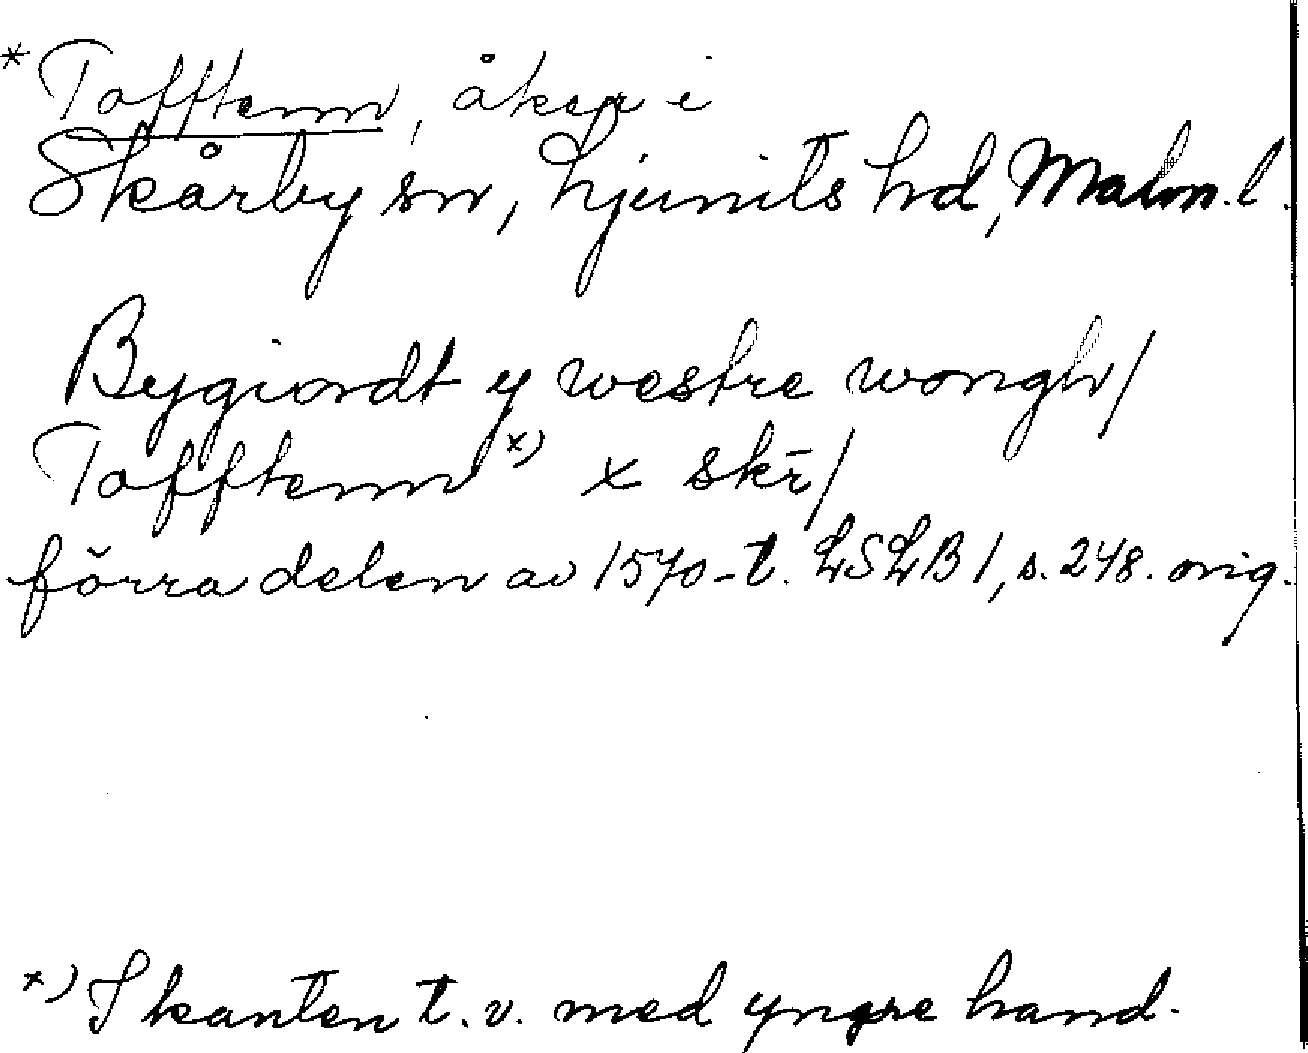 *Tofftenn, åker i
Skårby sn, Ljunits hd, Malm. l.
Bygiordt y westre wongh/
Tofftenn x) x skr̄/
förra delen av 1570-t. LSLB 1, s. 248. orig.
x) I kanten t.v. med yngre hand.